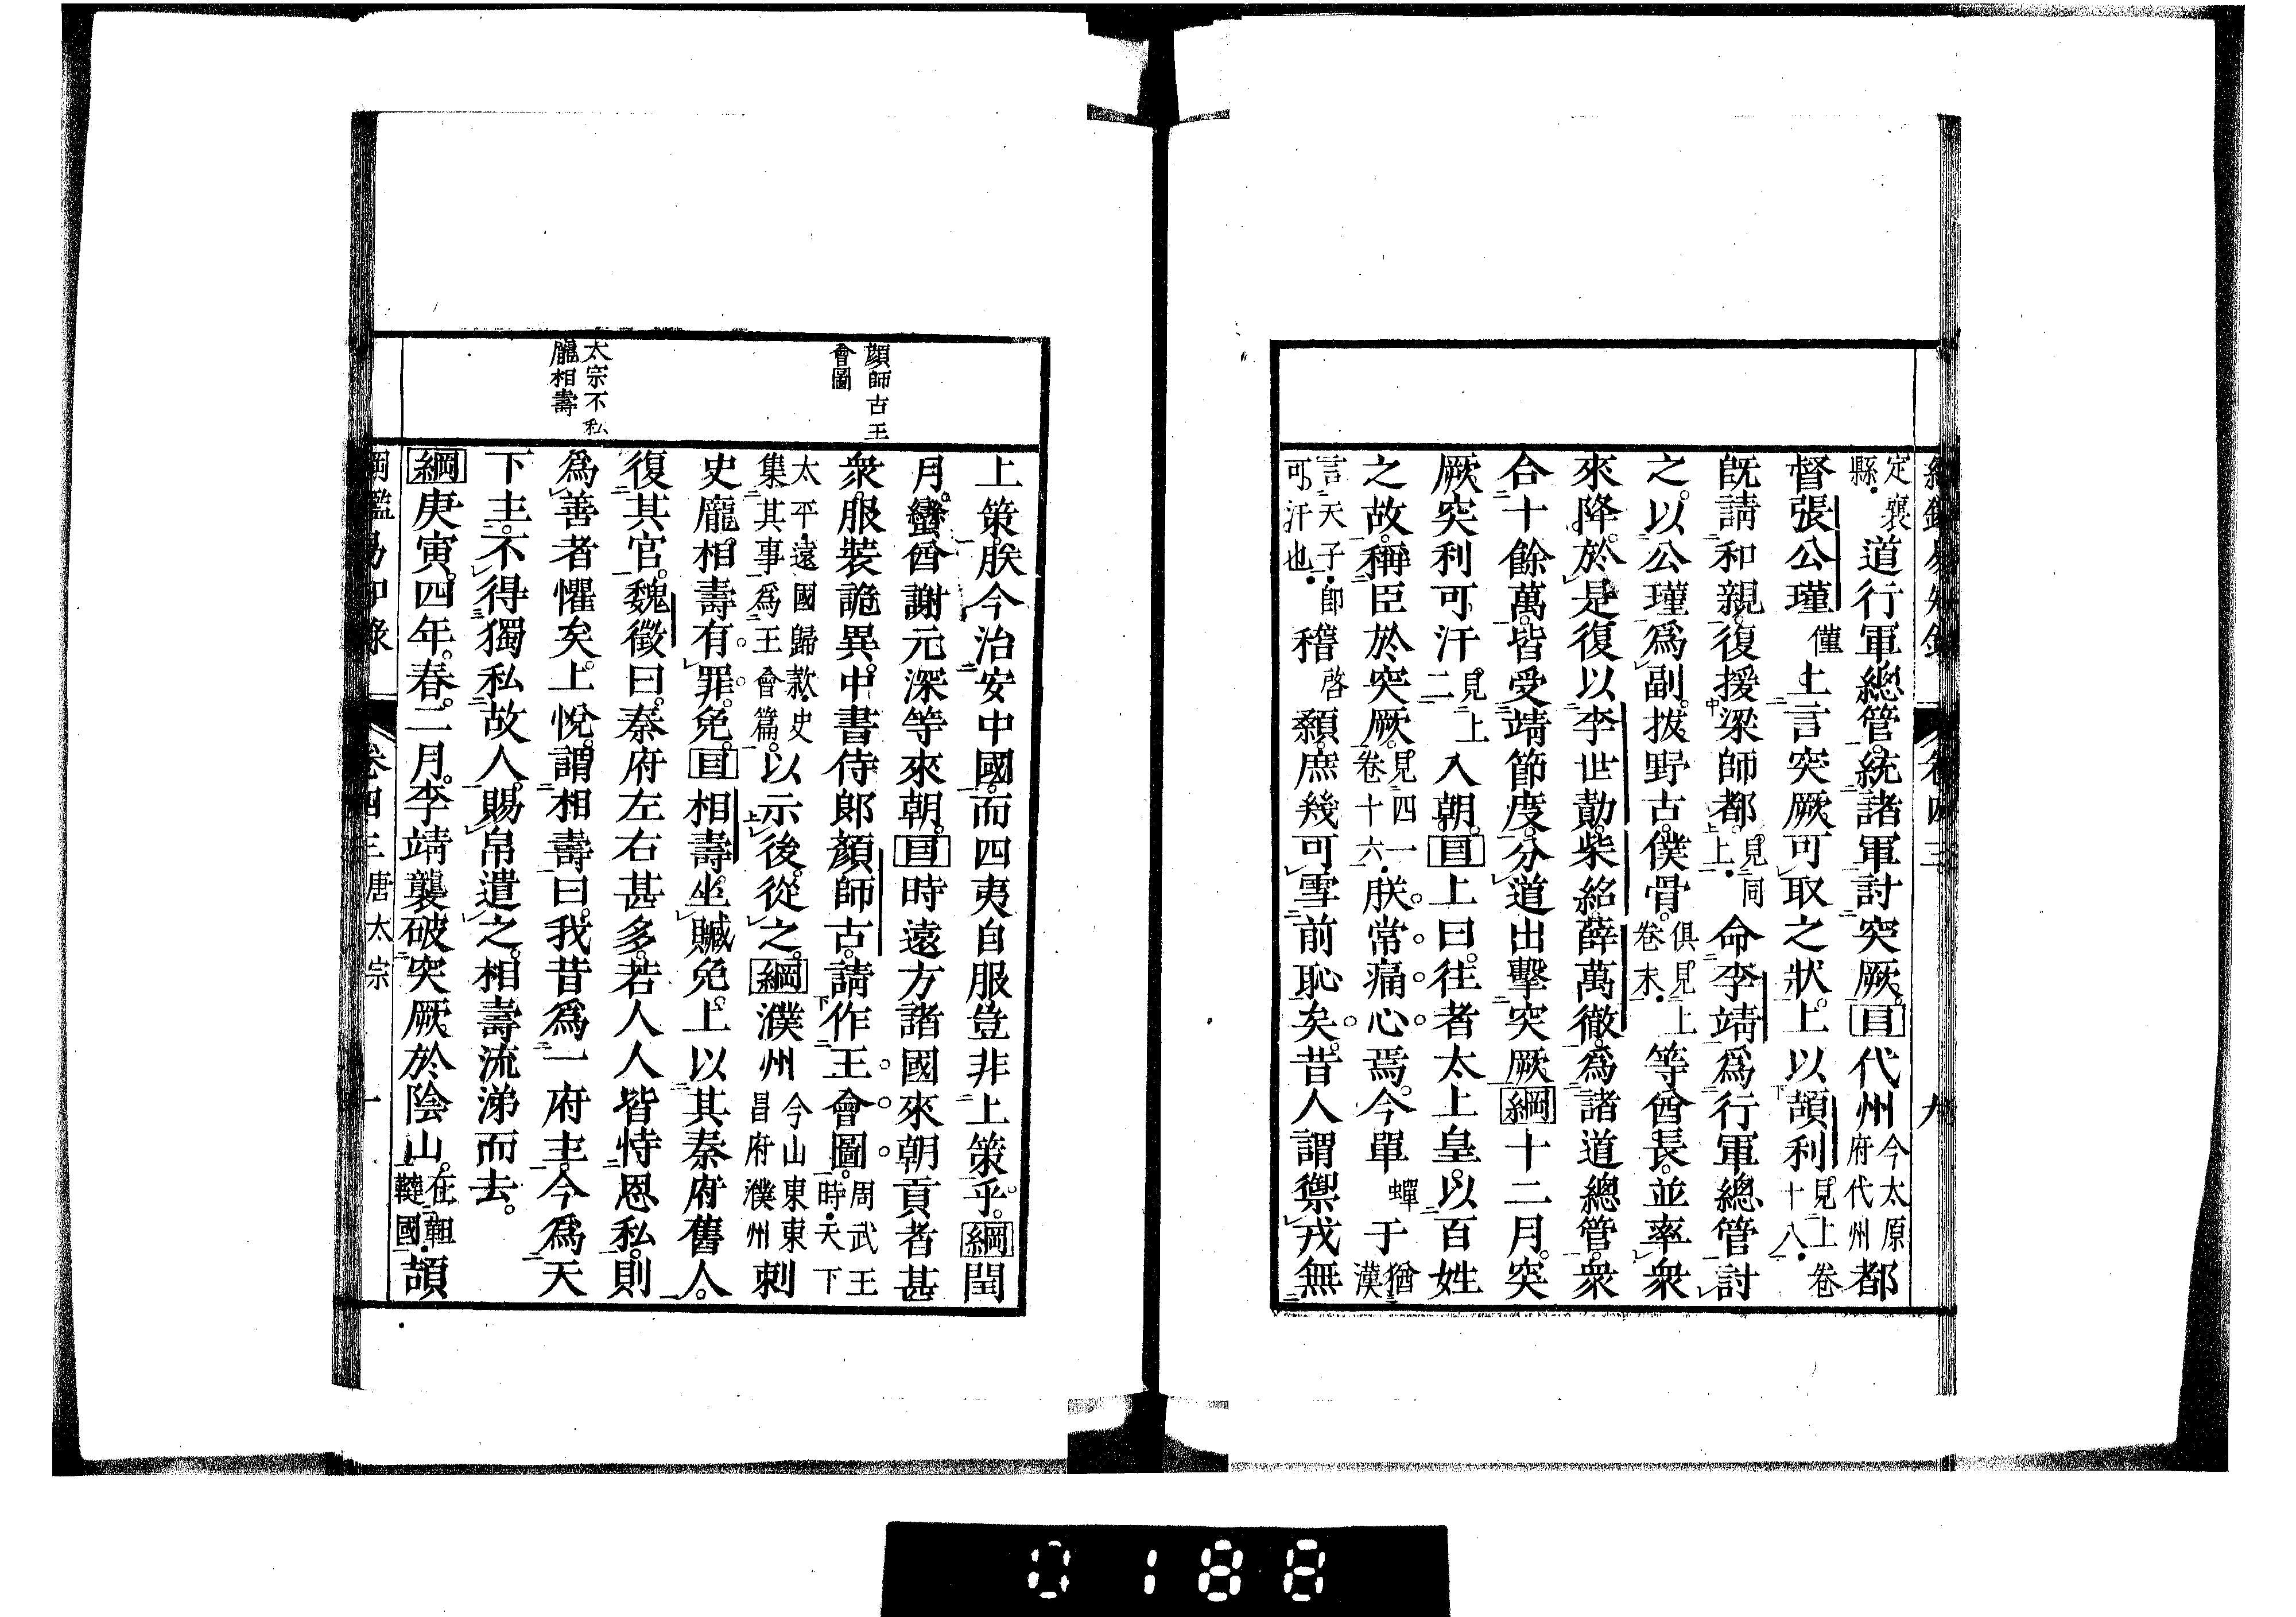 綱鑑易知錄 卷四三 九
定襄縣道行軍總管統諸軍討突厥目代州今太原府代州都
督張公瑾僅上言突厥可取之狀上以頡利見上卷十八
既請和親復援梁師都見同上命李靖爲行軍總管討
之以公瑾爲副拔野古僕骨俱見上卷末等酋長並率衆
來降於是復以李世勣柴紹薛萬徹爲諸道總管衆
合十餘萬皆受靖節度分道出擊突厥綱十二月突
厥突利可汗見上二入朝目上曰往者太上皇以百姓
之故稱臣於突厥見四一卷十六朕常痛心焉今單蟬于猶漢
言天子卽可汗也稽啓顙庶幾可雪前恥矣昔人謂禦戎無
顏師古王會圖
太宗不私龐相壽
上策朕今治安中國而四夷自服豈非上策乎綱閏
月蠻酋謝元深等來朝目時遠方諸國來朝貢者甚
衆服裝詭異中書侍郎顏師古請作王會圖周武王時天下
太平遠國歸款史集其事爲王會篇以示後從之綱濮州今山東東昌府濮州刺
史龐相壽有罪免目相壽坐贓免上以其秦府舊人
復其官魏徵曰秦府左右甚多若人人皆恃恩私則
爲善者懼矣上悅謂相壽曰我昔爲一府主今爲天
下主不得獨私故人賜帛遣之相壽流涕而去
綱庚寅四年春二月李靖襲破突厥於陰山在韃靼國頡
綱鑑易知錄 卷四三 唐太宗 十
0188